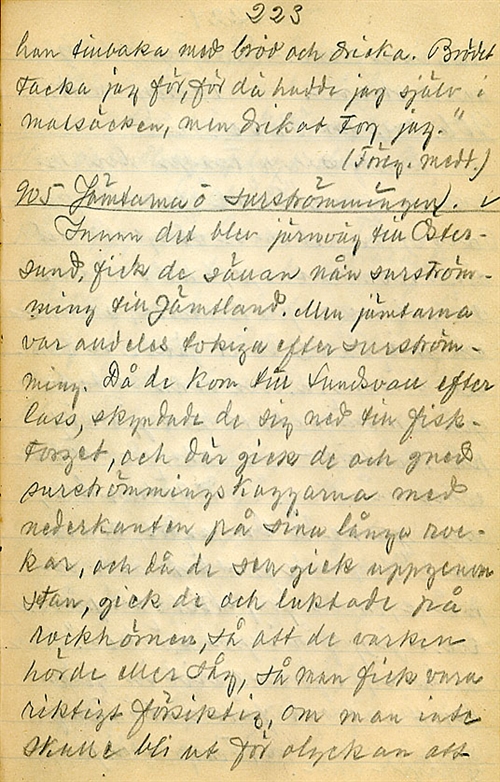 223
han tinbaka med bröd och dricka. Brödet
tacka jag för, för då hadde jag själv i
matsäcken, men drikat tog jag."
(Föreg. medt.)
905 Jämtarna ö surströmmingen.
Innan det blev järnväg till Öster-
sund, fick de sällan nån surström-
ming till Jämtland. Men jämtarna
var alldeles tokiga efter surström-
ming. Då de kom till Sundsvall efter
lass, skyndade de sig ned till fisk-
torget, och där gick de och gned
surströmmingskaggarna med
nederkanten på sina långa roc-
kar, och då de sen gick uppgenom
stan, gick de och luktade på
rockhörnen, så att de varken
hörde eller såg, så man fick vara
riktigt försiktig, om man inte
skulle bli ut för olyckan att